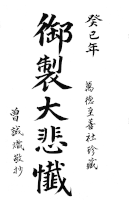 癸己年
萬德至善社珍藏
御製大悲懺
曾誠熾敬抄